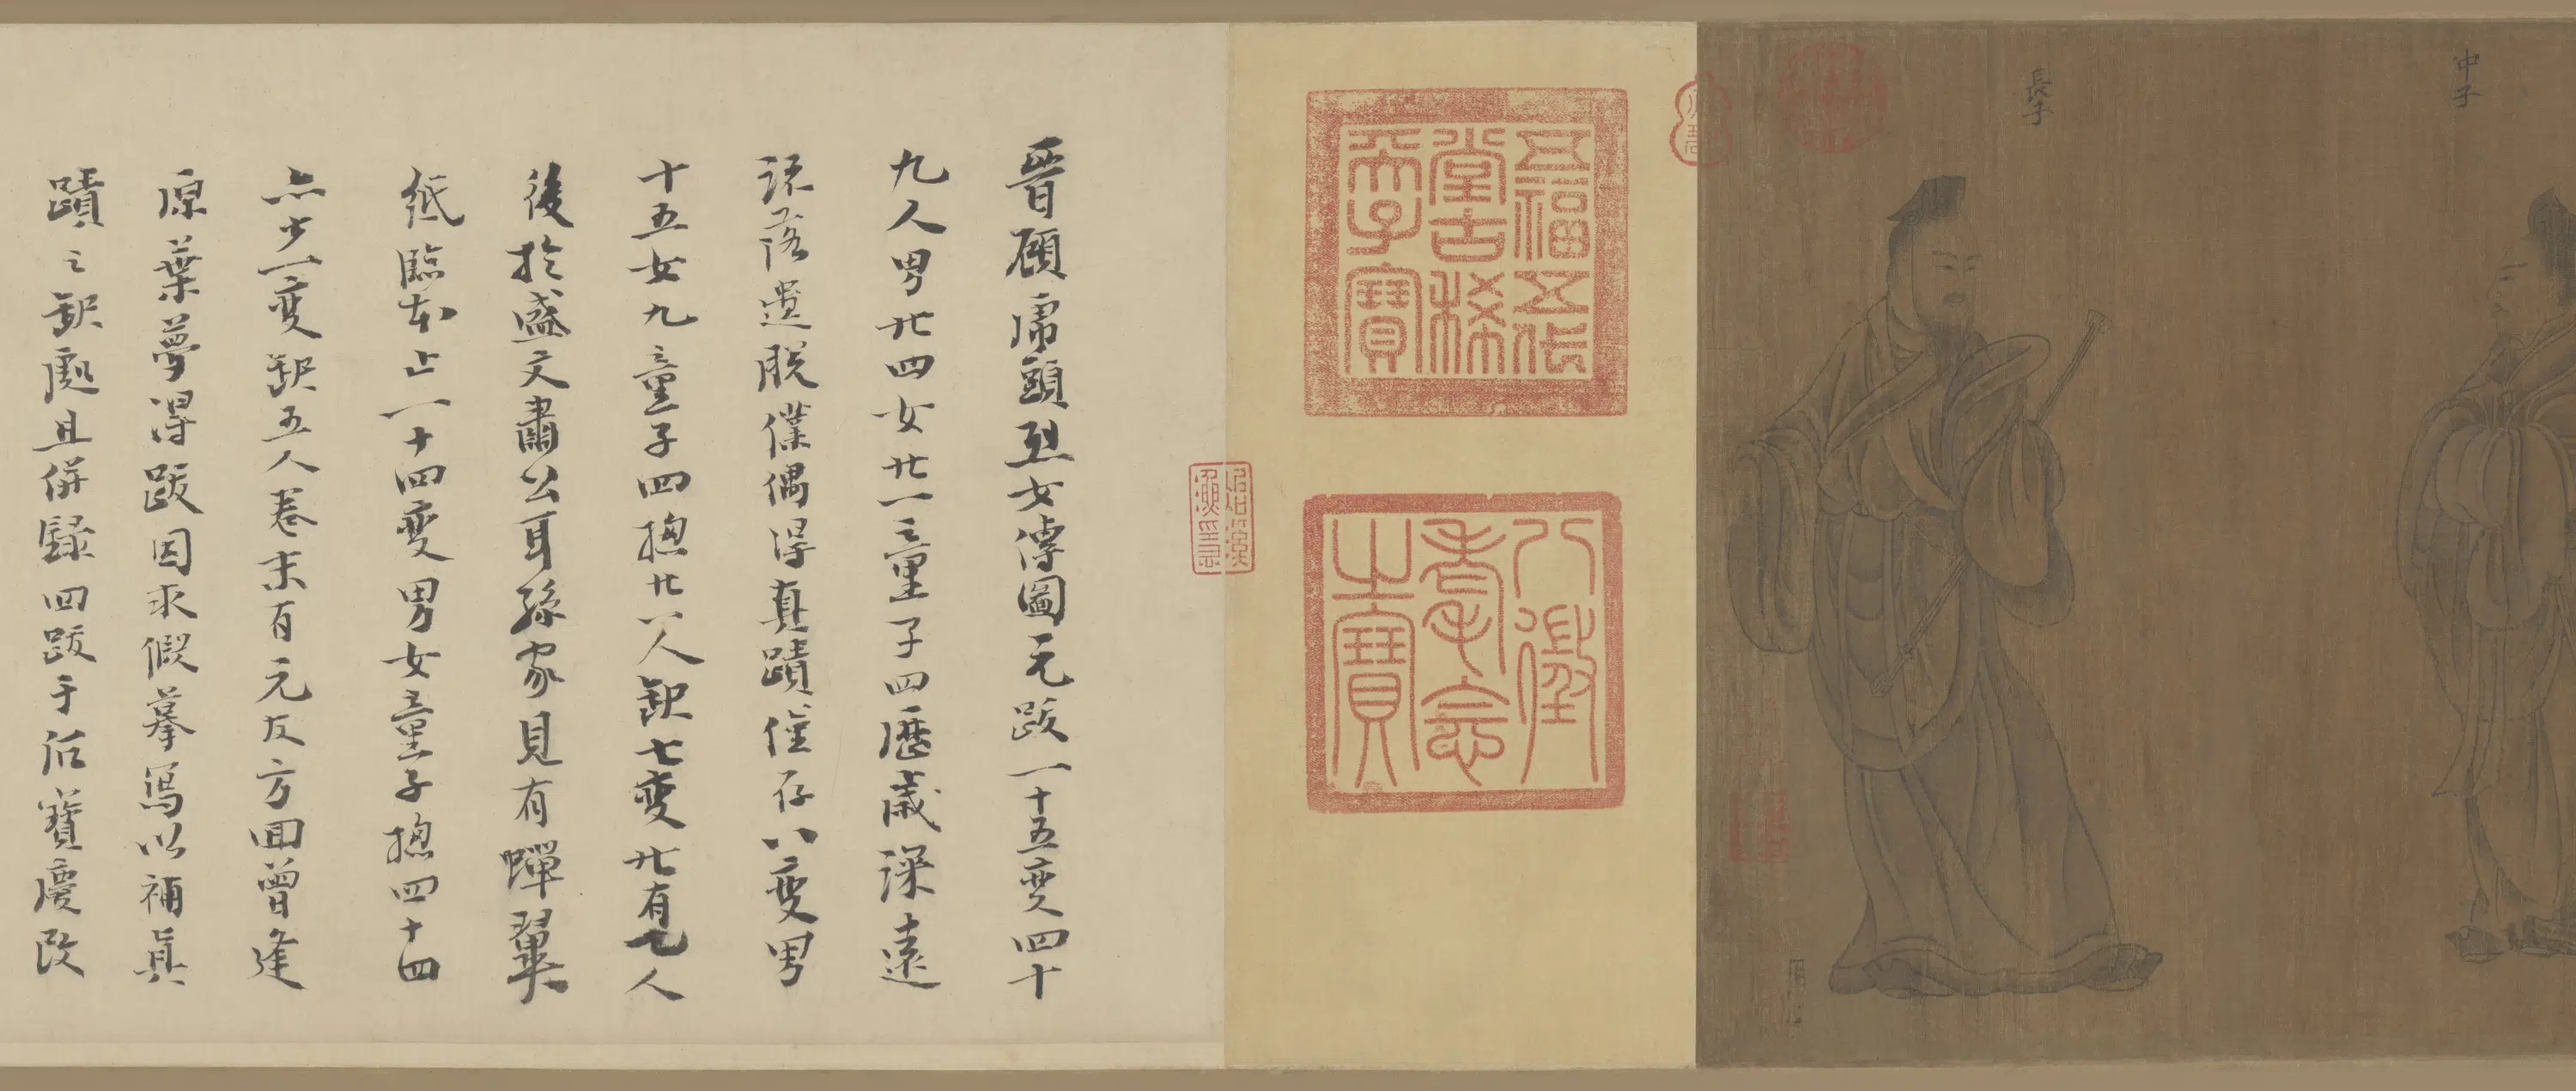 中子
長子
五福五代
堂古稀
天子寶
八徵
耄念
之寶
晉顧虎頭烈女傳圖元跋一十五變四十
九人男廿四女廿一童子四歷歲深遠
落遺脫僅偶得真蹟僅存八變男
十五女九童子四摠廿八人缺七變廿有一人
後於盛文肅公耳孫家見有蟬翼
紙臨本止一十四變男女童子摠四十四
亦少一變缺五人卷末有元友方回曾逢
原葉夢得跋因求假摹寫以補真
蹟之缺處且併錄四跋于后寶慶改